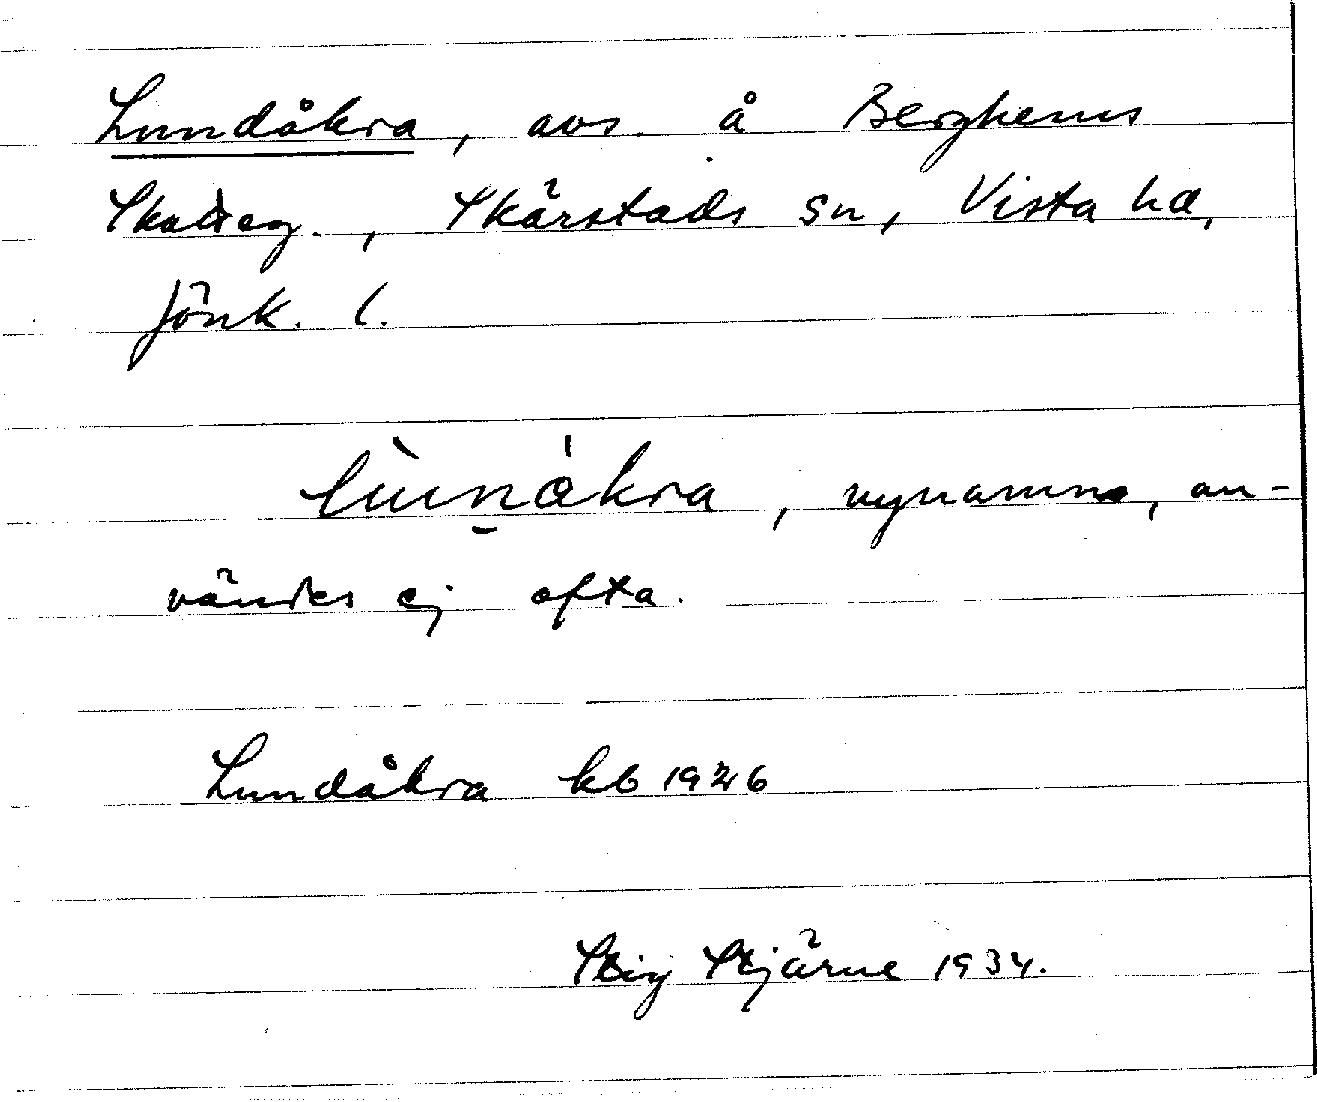 Lundåkra, avs. å Berghems
Skatteg., Skärstads sn, Vista hd,
Jönk. l.
lùnåkra, nynamn, an-
vändes ej ofta.
Lundåkra kb 1926
Stig Stjärne 1934.